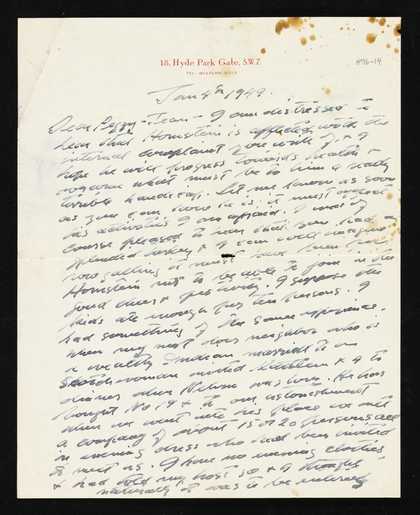 18, Hyde Park Gate, S.W.7.
TEL: WESTERN
Jan 4th 1949.
Dear Peggy-Jean - I am distressed to
hear that Hornstein is afflicted with the
internal you write of, & I
hope he will progress towards health &
what must be to him a really
terrible handicap. Let me know as soon
as you can how he is; it must
his activities I am afraid. I was of
course pleased to hear that you had a
splendid turkey & I can well imagine
how galling it must have been for
Hornstein not to be able to join in the
good cheer & . I suppose the
kids ate enough for ten persons. I
had something of the same experience.
When my next door neighbor who is
a wealthy Indian married to a
Scotchwoman invited Kathleen & I to
dinner when Nelson was here. He has
bought No 19 & to our astonishment
when we went into his place we met
a company of about 15 or 20 persons all
in evening dress who had been invited
to meet us. I have no evening clothes
& had told my host so & I thought
naturally it was to be entirely